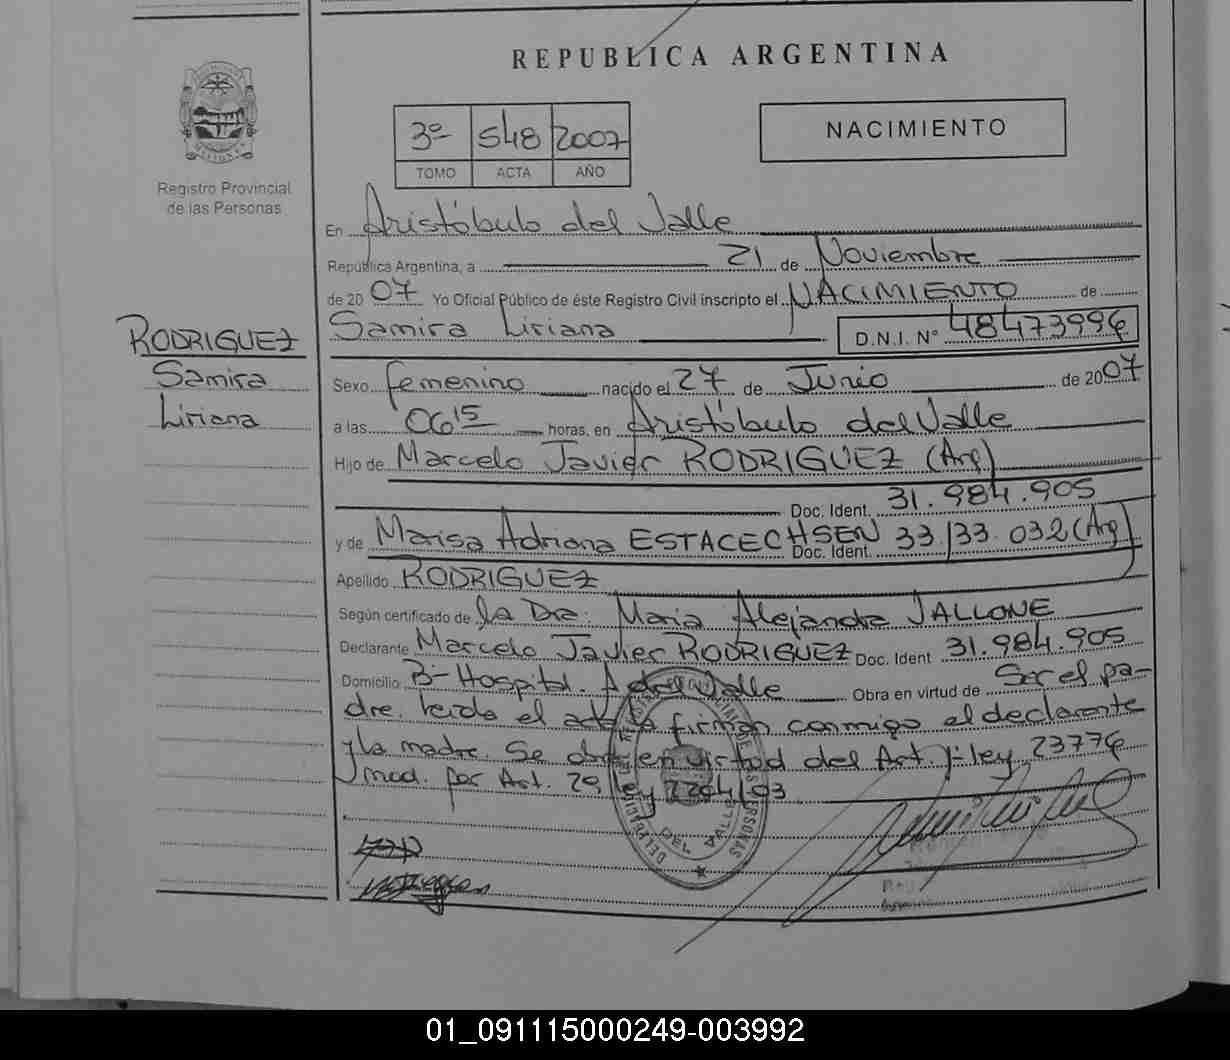 REPUBLICA ARGENTINA
3º 548 2007
TOMO ACTA AÑO
NACIMIENTO
Registro Provincial
de las Personas
En Aristóbulo del Valle
República Argentina, a 21 de Noviembre
de 2007 Yo Oficial Público de éste Registro Civil inscripto el NACIMIENTO de
Samira Liriana D.N.I. Nº 48473996
RODRIGUEZ
Samira
Liriana
Sexo femenino nacido el 27 de Junio de 2007
a las 06 15 horas, en Aristóbulo del Valle
Hijo de Marcelo Javier RODRIGUEZ (Arg)
Doc. Ident. 31.984.905
y de Marisa Adriana ESTACECHSEN Doc. Ident. 33.133.032 (Arg)
Apellido RODRIGUEZ
Según certificado de la Dra. Maria Alejandra VALLONE
Declarante Marcelo Javier RODRIGUEZ Doc. Ident 31.984.905
Domicilio Bº Hospital. A del Valle Obra en virtud de Ser el pa-
dre. leida el acta la firman conmigo el declarante
y la madre. Se obra en virtud del Art. 1º ley 23776
mod. por Art. 29 ley 2204/03
DEL VALLE
01_091115000249-003992